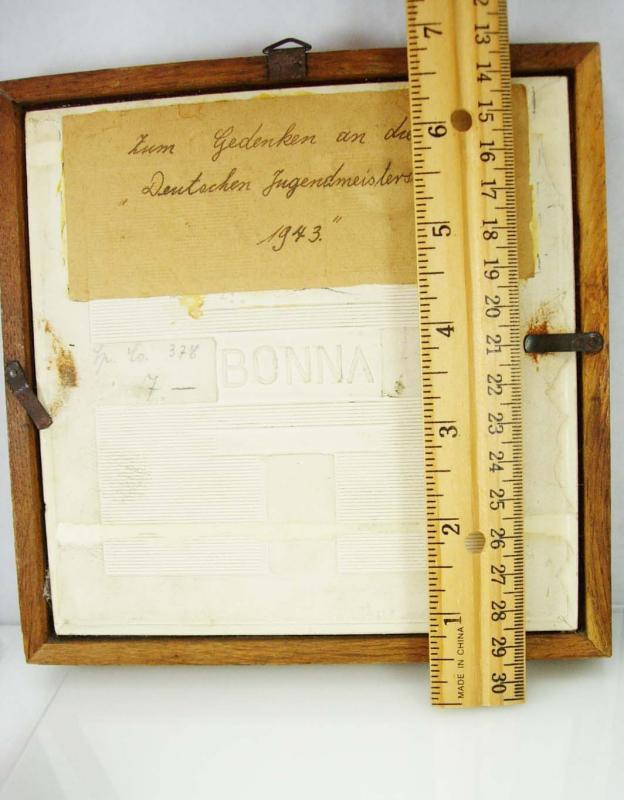 Zum Gedenken an die
"Deutschen Jugendmeisters
1943."
BONNA
378
7 —
7
6
5
4
3
2
1
MADE IN CHINA
12
13
14
15
16
17
18
19
20
21
22
23
24
25
26
27
28
29
30